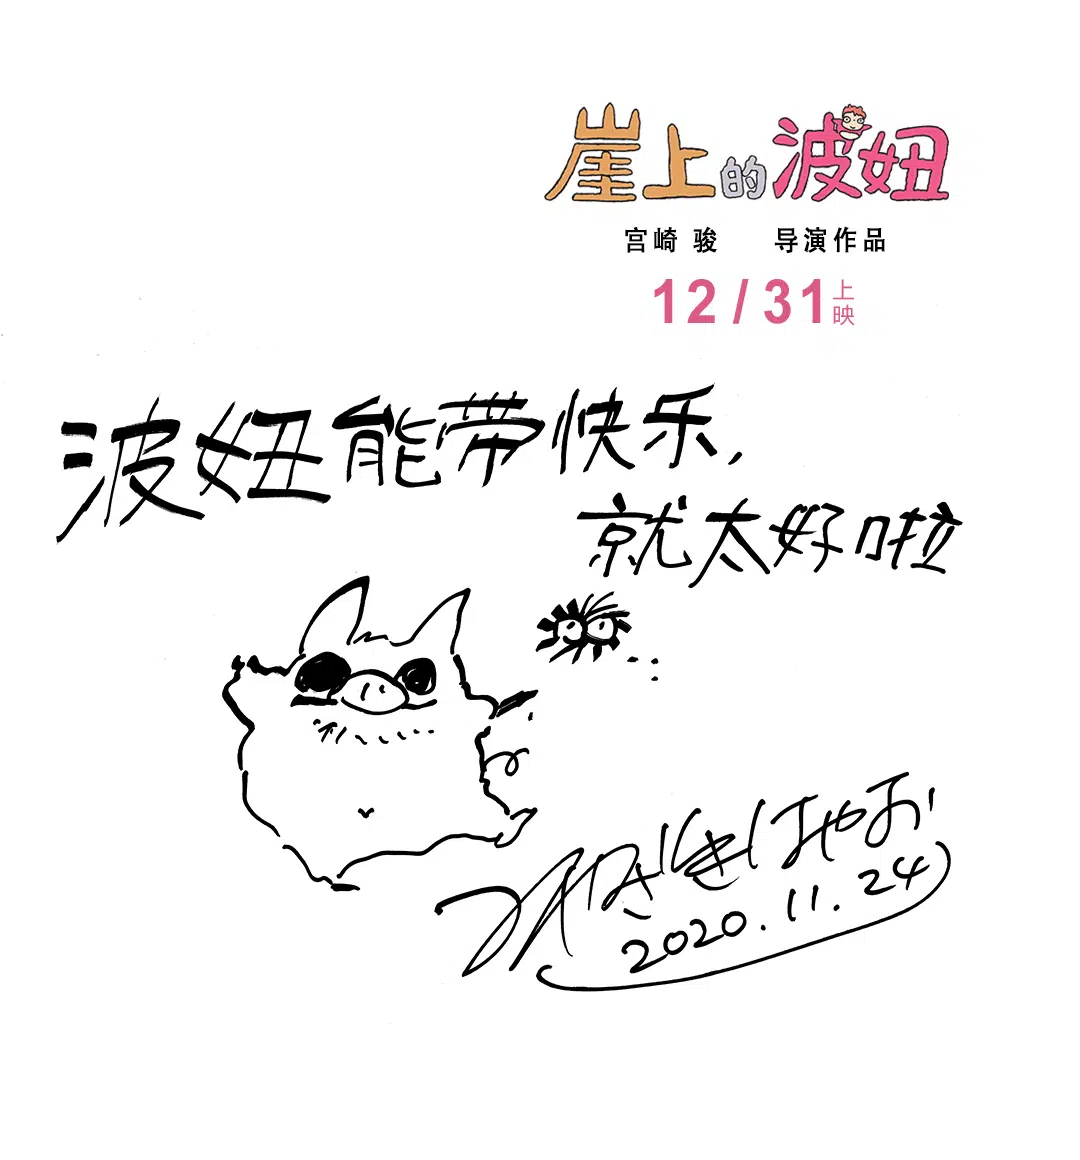 崖上的波妞
宫崎 骏 导演作品
12/31上映
波妞能带快乐,
就太好啦
みやざきはやお
2020.11.24